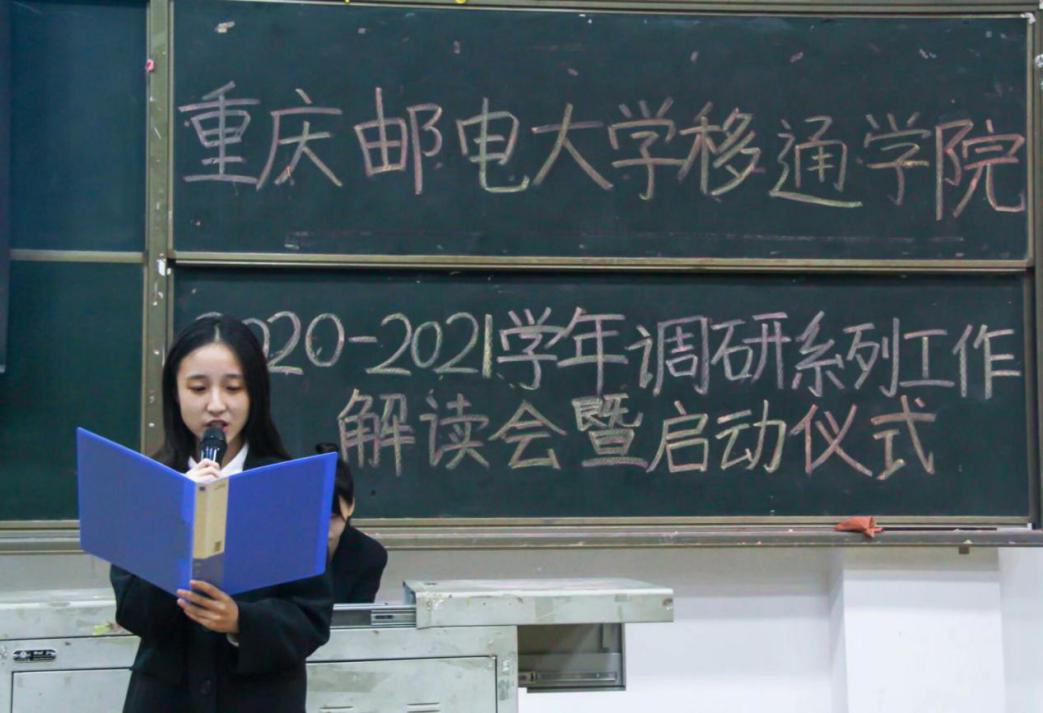 重庆邮电大学移通学院
2020-2021学年调研系列工作
解读会暨启动仪式